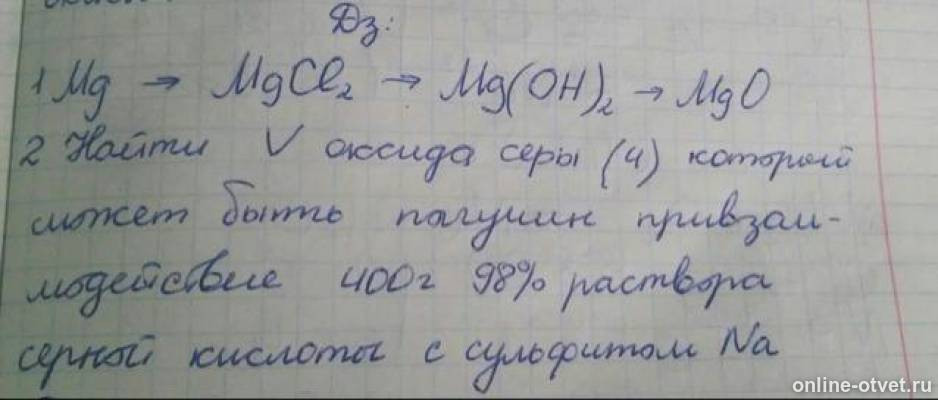 Дз:
1 Mg → MgCl₂ → Mg(OH)₂ → MgO
2 Найти V оксида серы (4) который
может быть получин привзаи-
модействие 400г 98% раствора
серной кислоты с сульфитом Na
online-otvet.ru